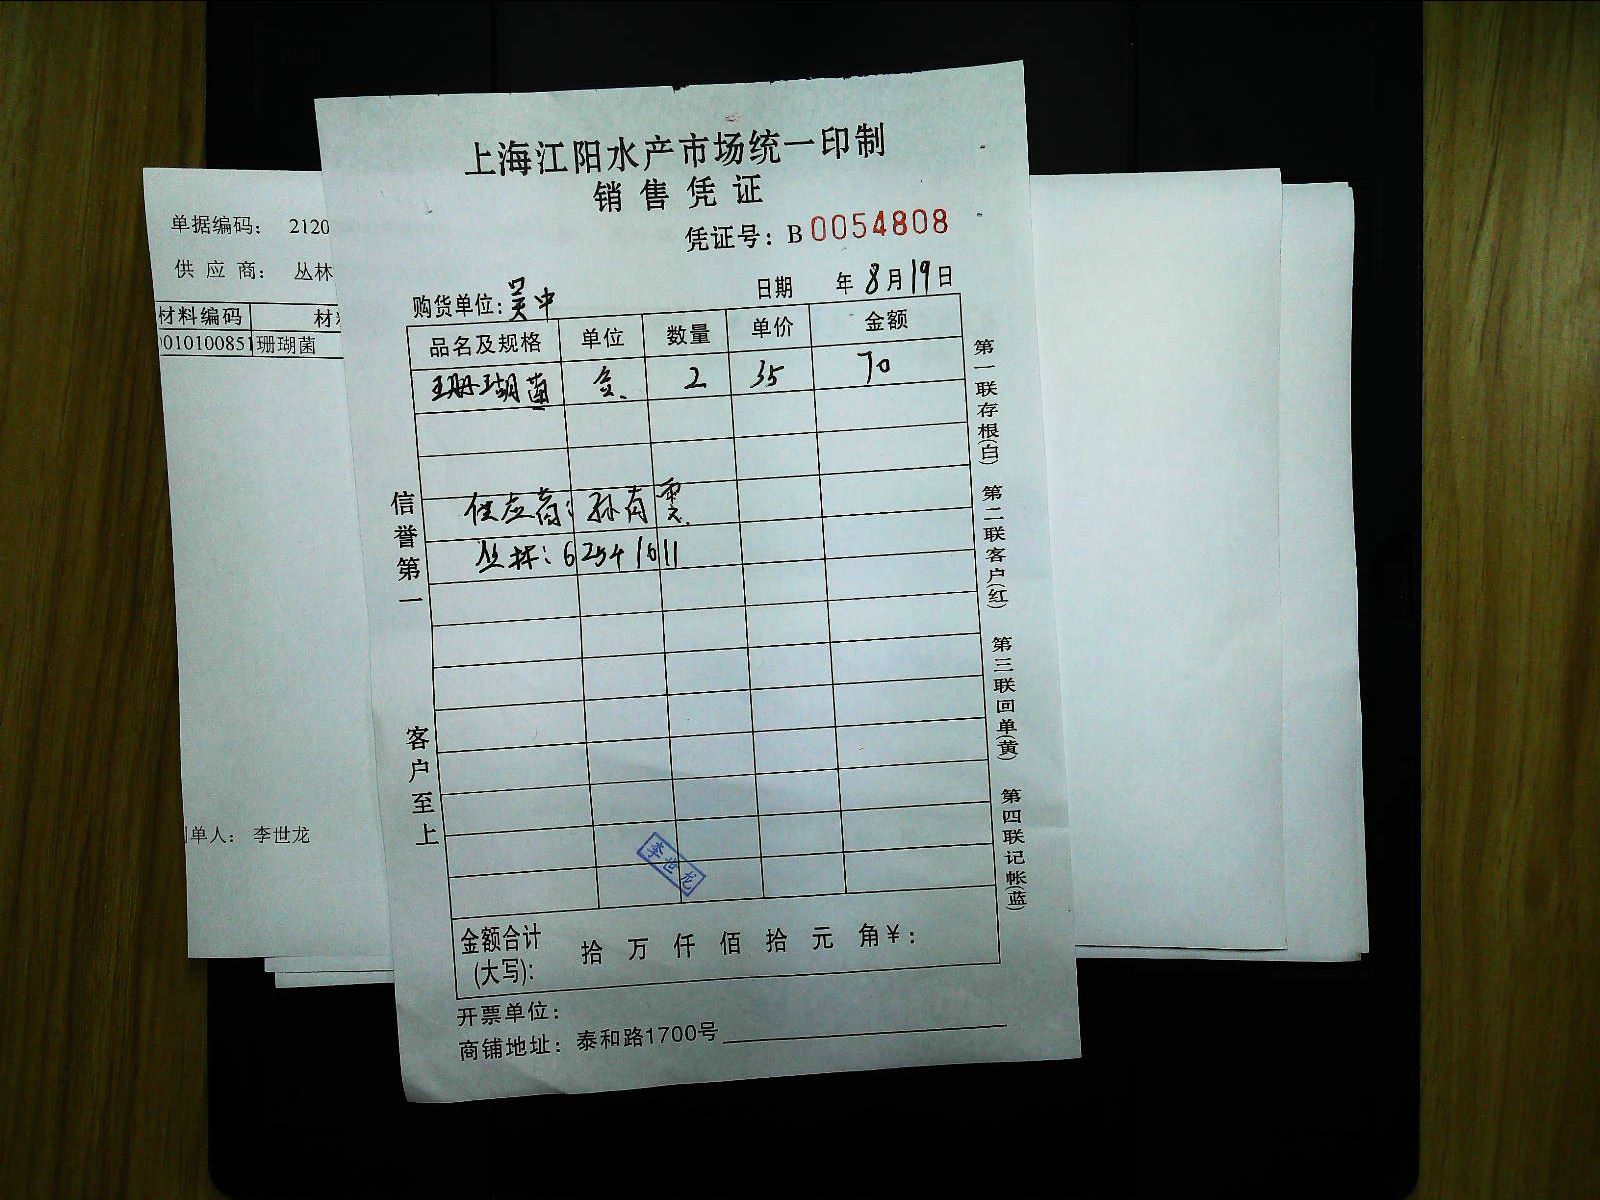 上海江阳水产市场统一印制
销售凭证
凭证号：B0054808
购货单位：吴中 日期 年8月19日
品名及规格 单位 数量 单价 金额
珊瑚菌 2 35 70
供应商：孙有
丛林：62541011
信誉第一
客户至上
第一联存根(白) 第二联客户(红) 第三联回单(黄) 第四联记帐(蓝)
李世龙
金额合计(大写)： 拾 万 仟 佰 拾 元 角￥：
开票单位：
商铺地址：泰和路1700号
单据编码： 2120
供应商： 丛林
材料编码 材
010100851 珊瑚菌
单人： 李世龙